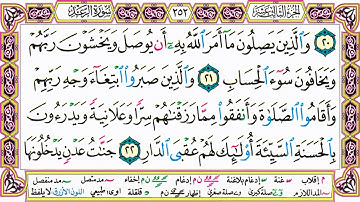 الجزء الثالث عشر ٢٥٢ سورة الرعد
٢٠ وَالَّذِينَ يَصِلُونَ مَا أَمَرَ اللَّهُ بِهِ أَن يُوصَلَ وَيَخْشَوْنَ رَبَّهُمْ
وَيَخَافُونَ سُوءَ الْحِسَابِ ٢١ وَالَّذِينَ صَبَرُوا ابْتِغَاءَ وَجْهِ رَبِّهِمْ
وَأَقَامُوا الصَّلَوٰةَ وَأَنفَقُوا مِمَّا رَزَقْنَاهُمْ سِرًّا وَعَلَانِيَةً وَيَدْرَءُونَ
بِالْحَسَنَةِ السَّيِّئَةَ أُولَٰئِكَ لَهُمْ عُقْبَى الدَّارِ ٢٢ جَنَّاتُ عَدْنٍ يَدْخُلُونَهَا